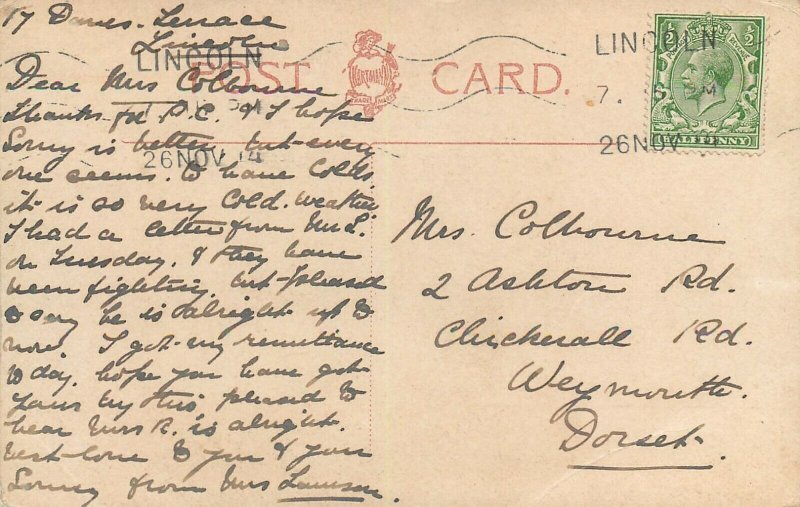 17 Danes. Terrace
Lincoln
Dear Mrs Colbourne
Thanks for P.C. & I hope
Sonny is better but every
one seems. to have Colds.
it is so very Cold. weather
I had a letter from Mr L.
on Tuesday. & they have
been fighting but pleased
to say he is alright up to
now. I got my remittance
to day. hope you have got
yours by this pleased to
hear Mr R. is alright.
best love to you & your
Sonny from Mrs Lawson.
POST CARD.
WARTMAN
TRADE MARK
LINCOLN
PM
26 NOV 14
LINCOLN
7. 6 PM
26 NOV
HALFPENNY
½ ½
Mrs. Colbourne
2 Ashton Rd.
Chickerall Rd.
Weymouth.
Dorset.